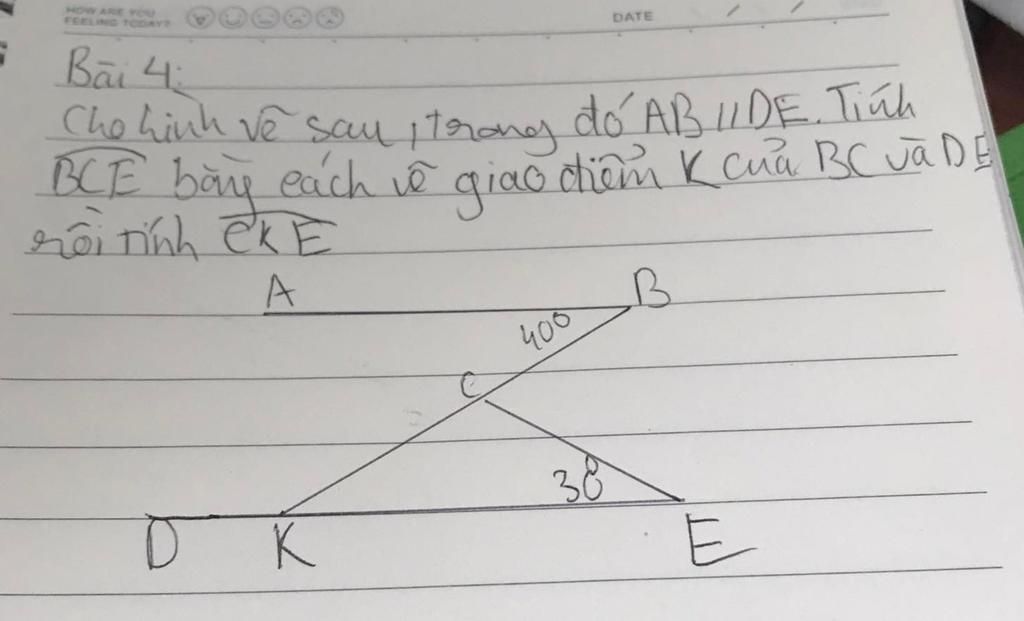 HOW ARE YOU
FEELING TODAY?
DATE
Bài 4:
Cho hình vẽ sau, trong đó AB // DE. Tính
BCE bằng cách vẽ giao điểm K của BC và DE
rồi tính CKE
A
B
40°
C
30°
D
K
E